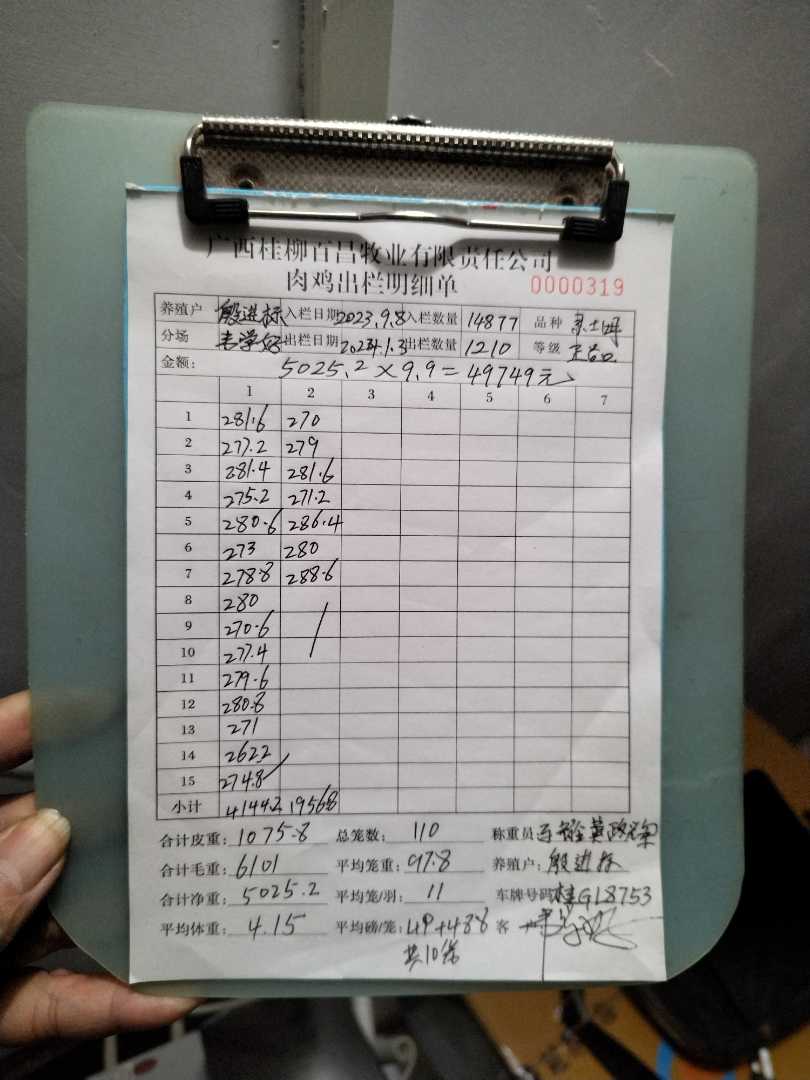 广西桂柳百昌牧业有限责任公司
肉鸡出栏明细单 0000319
养殖户 殷进标 入栏日期 2023.9.8 入栏数量 14877 品种
分场 韦学好 出栏日期 2024.1.3 出栏数量 1210 等级 正品
金额: 5025.2×9.9=49749元
1 2 3 4 5 6 7
1 281.6 270
2 277.2 279
3 281.4 281.6
4 275.2 271.2
5 280.6 286.4
6 273 280
7 278.8 288.6
8 280
9 270.6
10 277.4
11 279.6
12 280.8
13 271
14 262.2
15 274.8
小计 4144.2 1956.8
合计皮重: 1075.8 总笼数: 110 称重员
合计毛重: 6101 平均笼重: 97.8 养殖户: 殷进标
合计净重: 5025.2 平均笼/羽: 11 车牌号码 桂GL8753
平均体重: 4.15 平均磅/笼: 49+48.8 客
共10笼